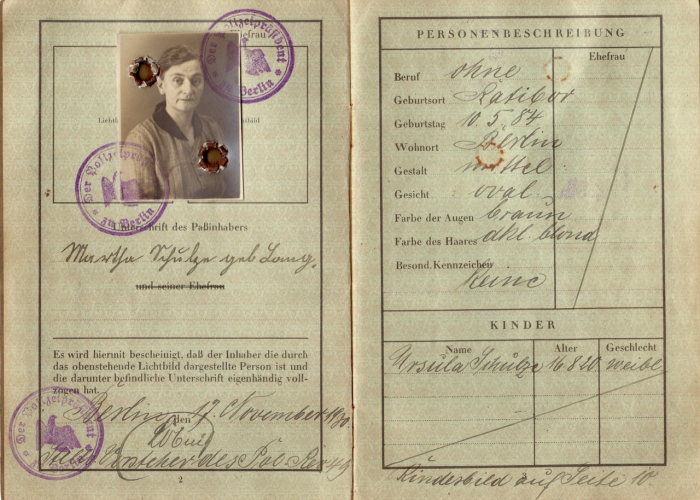 Ehefrau
Der Polizeipräsident
in Berlin
Der Polizeipräsident
in Berlin
Unterschrift des Paßinhabers
Martha Schulze geb Lang.
und seiner Ehefrau
Es wird hiermit bescheinigt, daß der Inhaber die durch
das obenstehende Lichtbild dargestellte Person ist und
die darunter befindliche Unterschrift eigenhändig voll-
zogen hat.
Berlin, den 17. November 1930
Vorsteher des Pol. Rev 49
2
PERSONENBESCHREIBUNG
Ehefrau
Beruf ohne
Geburtsort Ratibor
Geburtstag 10. 5. 84
Wohnort Berlin
Gestalt mittel
Gesicht oval
Farbe der Augen braun
Farbe des Haares dkl. blond
Besond. Kennzeichen
Keine
KINDER
Name Alter Geschlecht
Ursula Schulze 16 8 20 weibl
Kinderbild auf Seite 10.